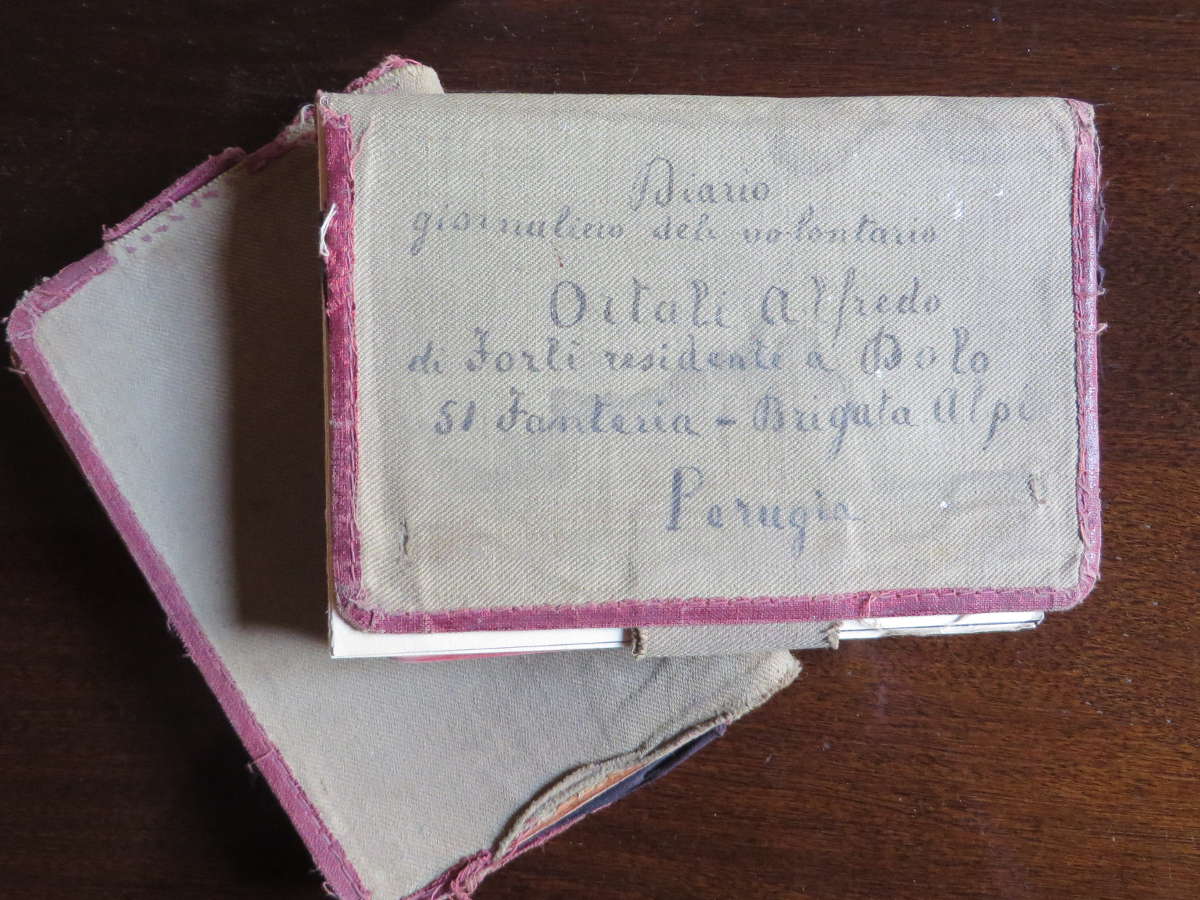 Diario
giornaliero del volontario
Ortali Alfredo
di Forlì residente a Bolo
51 Fanteria - Brigata Alpi
Perugia